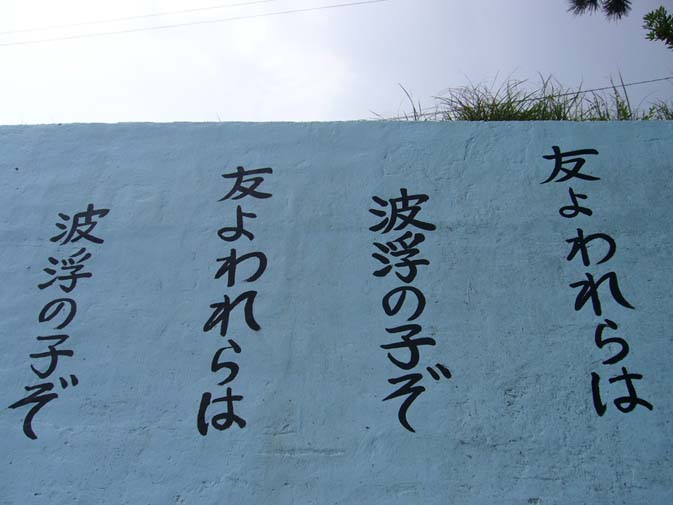 友よわれらは
波浮の子ぞ
友よわれらは
波浮の子ぞ